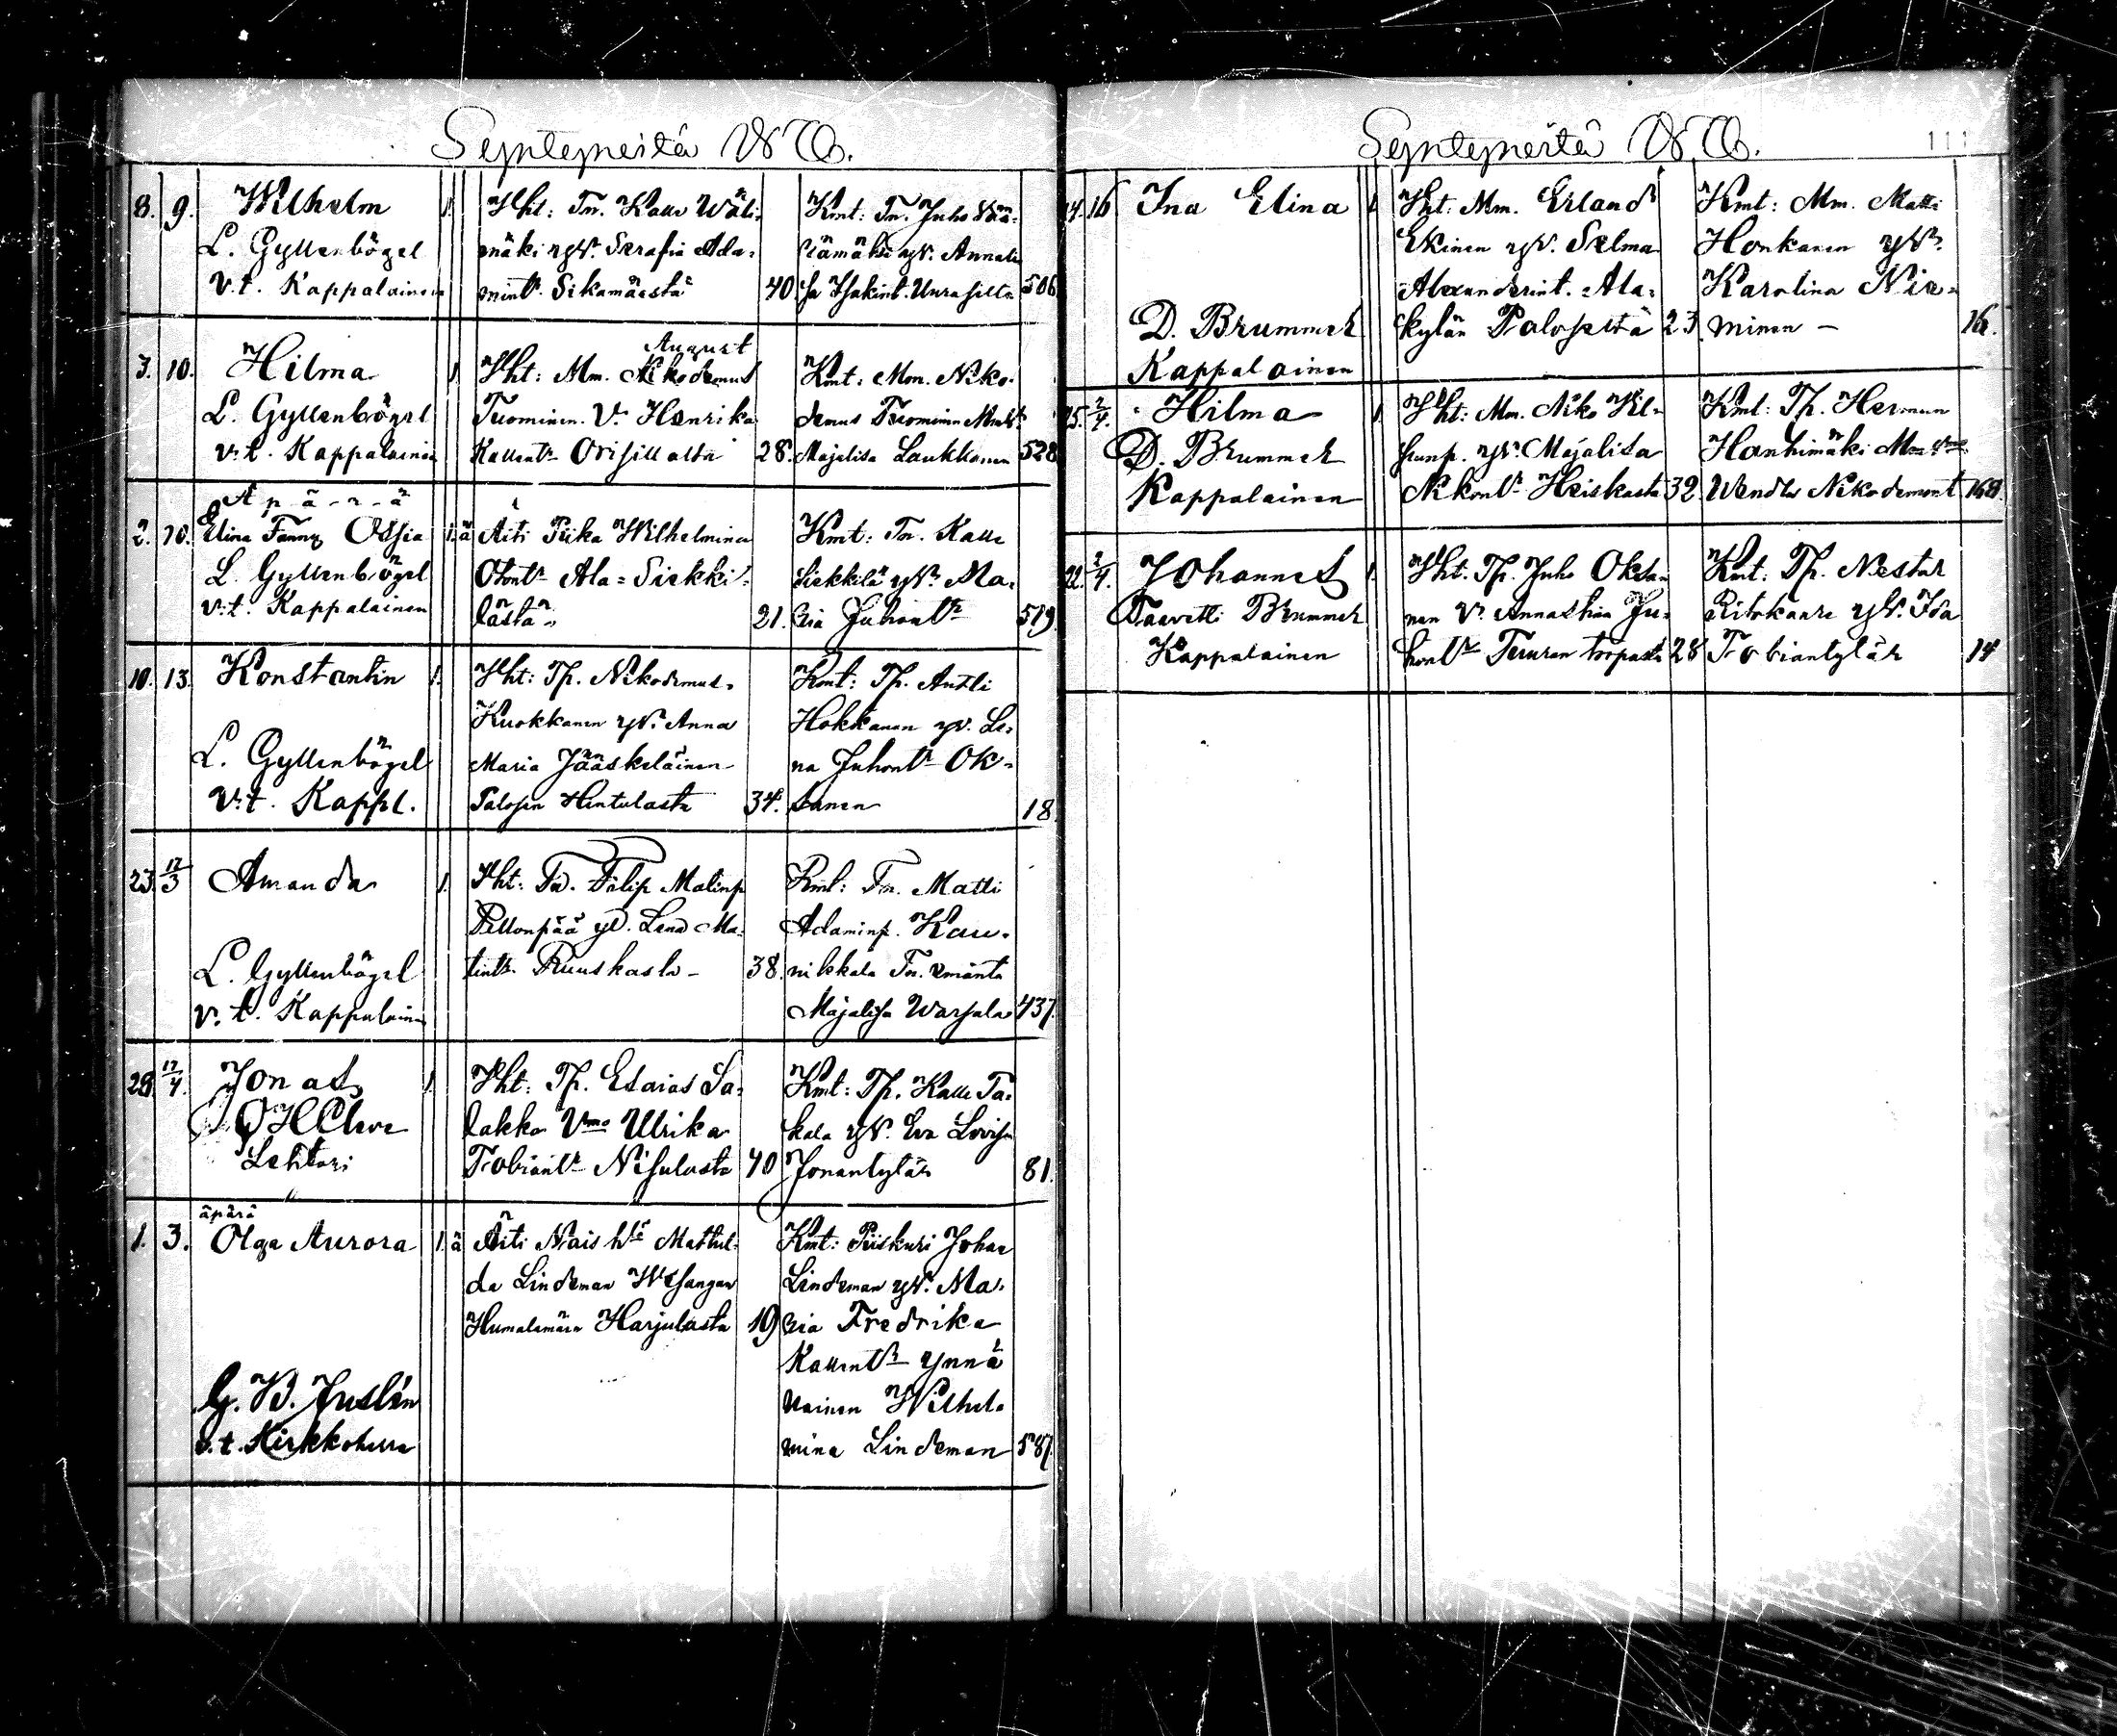 Syntyneitä
8. 9. Wilhelm 1.
L. Gyllenbögel
v.t. Kappalainen
Yht: Tn. Kalle Wäli-
mäki yV. Serafia Ada-
mintr. Sikamäestä 40
Kmt: Tn. Juho
yV. Annali-
sa Isakint. 506
3. 10. Hilma 1.
L. Gyllenbögel
v.t. Kappalainen
August
Yht: Mm. Nikodemus
Tuominen V. Henrika
Kallentr Orisillalta 28.
Kmt: Mm. Niko-
demus Tuominen
Majalisa Laukkanen 528
Äpärä
2. 10. Elina Fanny 1. ä
L. Gyllenbögel
v.t. Kappalainen
Äiti Piika Wilhelmina
Ala=Siekki-
lästä 21.
Kmt: Tn. Kalle
Siekkilä yV. Ma-
ria Juhontr 519.
10. 13. Konstantin 1.
L. Gyllenbögel
v.t. Kappl.
Yht: Tp. Nikodemus
Kuokkanen yV. Anna
Maria Jääskeläinen
Palojen Hintulasta 34.
Kmt: Tp. Antti
Hokkanen yV. Le-
na Juhontr Ok-
sanen 18.
23. 12/3 Amanda 1.
L. Gyllenbögel
v.t. Kappalainen
Yht: Filip Matinp
Pellonpää yV. Lena Ma-
tintr. Ruuskasta 38.
Kmt: Tn. Matti
Adaminp. Kau-
nikkala Tn. emäntä
Majalisa Warjala 437.
28. 12/4. Jonas 1.
O H Cleve
Lehtori
Yht: Tp. Esaias Sa-
lakka Vmo Ulrika
Tobiantr Nisulasta 40
Kmt: Tp. Kalle Ta-
kala yV. Eva Lovisa
Jonantytär 81.
äpärä
1. 3. Olga Aurora 1. ä
G. W. Juslén
v.t. Kirkkoherra
Äiti Mathil-
da Lindeman
Harjulasta 19
Kmt: Piiskuri Johan
Lindeman yV. Ma-
ria Fredrika
Kallentr ynnä
nainen Wilhel-
mina Lindeman 587.
Syntyneitä
111
14. 16 Ina Elina 1.
D. Brummer
Kappalainen
Yht: Mm. Erland
Ekinen yV. Selma
Alexanderint. Ala-
kylän Palopeltä 23
Kmt: Mm. Matti
Honkanen yV.
Karolina Nie-
minen – 16.
25. 2/4. Hilma 1.
D. Brummer
Kappalainen
Yht: Mm. Niko Wil-
hump. yV. Majalisa
Nikontr Heiskasta 32
Kmt: Tp. Herman
Hanhimäki
Wendla Nikodemont 168.
22. 2/4. Johannes 1.
Taavetti Brummer
Kappalainen
Yht. Tp. Juho Oksa-
nen V. Annastiina Ju-
hontr torpasta 28
Kmt: Tp. Nestor
Ritokaare yV. Ida
Tobiantytär 14